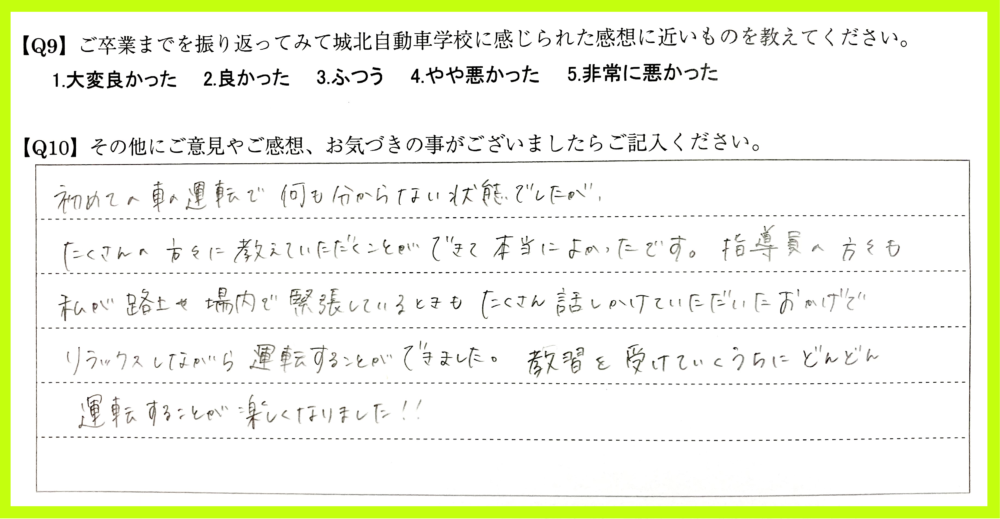 【Q9】ご卒業までを振り返ってみて城北自動車学校に感じられた感想に近いものを教えてください。
1.大変良かった 2.良かった 3.ふつう 4.やや悪かった 5.非常に悪かった
【Q10】その他にご意見やご感想、お気づきの事がございましたらご記入ください。
初めての車の運転で何も分からない状態でしたが、
たくさんの方々に教えていただくことができて本当によかったです。指導員の方々も
私が路上や場内で緊張しているときもたくさん話しかけていただいたおかげで
リラックスしながら運転することができました。教習を受けていくうちにどんどん
運転することが楽しくなりました!!